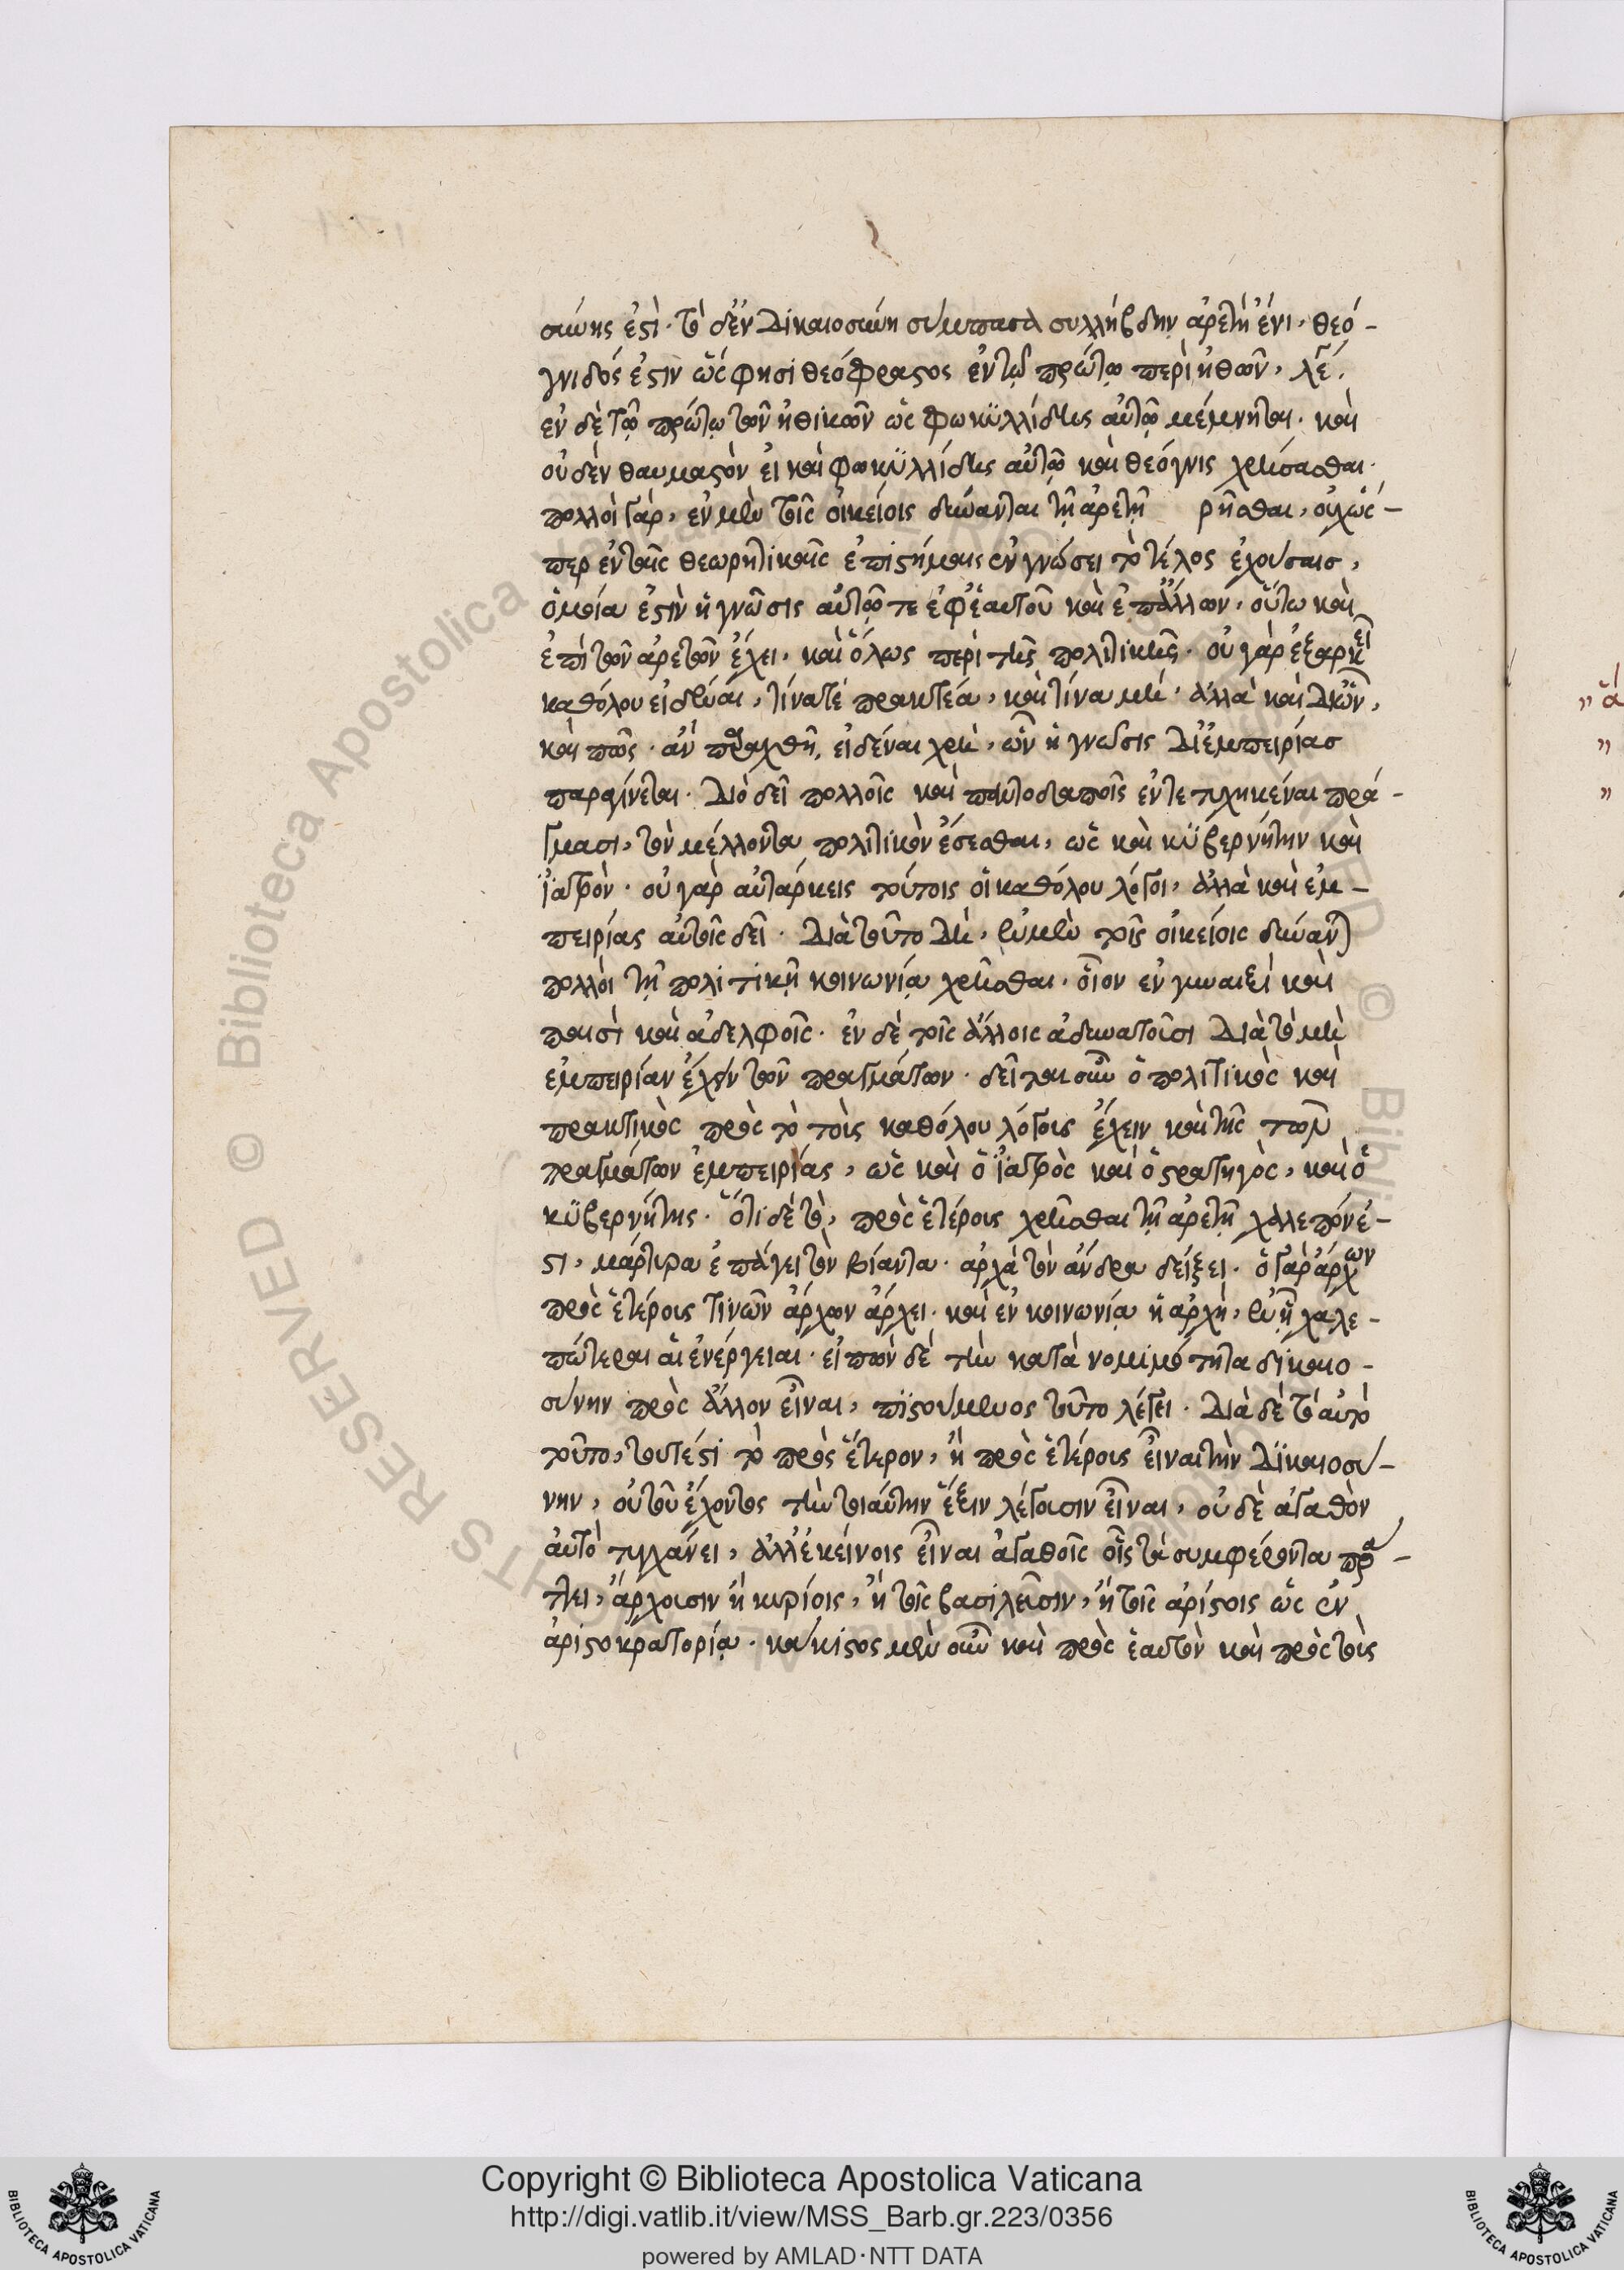 σύνης ἐστί. τὸ δ' ἐν δικαιοσύνη σύμπασα συλλήβδην ἀρετὴ ἔνι. θεό-
γνιδός ἐστιν ὥς φησι θεόφραστος ἐν τῷ πρώτῳ περὶ ἠθῶν, λέ.
ἐν δὲ τῷ πρώτῳ τῶν ἠθικῶν ὡς φωκυλλίδης αὐτῷ μέμνηται. καὶ
οὐδὲν θαυμαστὸν εἰ καὶ φωκυλλίδης αὐτῷ καὶ θεόγνις χρήσασθαι.
πολλοὶ γάρ, ἐν μὲν τοῖς οἰκείοις δύνανται τῇ ἀρετῇ ρῆσθαι, οὐχ ὥς-
περ ἐν ταῖς θεωρητικαῖς ἐπιστήμαις ἐν γνώσει τὸ τέλος ἐχούσαισ,
ὁμοία ἐστὶν ἡ γνῶσις αὐτῷ τε ἐφ' ἑαυτοῦ καὶ ἐπ' ἄλλων, οὕτω καὶ
ἐπὶ τῶν ἀρετῶν ἔχει. καὶ ὅλως περὶ τῆς πολιτικῆς. οὐ γὰρ ἐξαρκεῖ
καθόλου εἰδέναι, τίνα τὲ πρακτέα, καὶ τίνα μή. ἀλλὰ καὶ δι' ὧν,
καὶ πῶς. ἂν πραχθῆ, εἰδέναι χρή, ὧν ἡ γνῶσις δι' ἐμπειρίασ
παραγίνεται. διὸ δεῖ πολλοῖς καὶ παντοδαποῖς ἐντετυχηκέναι πρά-
γμασι, τὸν μέλλοντα πολιτικὸν ἔσεσθαι, ὡς καὶ κυβερνήτην καὶ
ἰατρόν. οὐ γὰρ αὐτάρκεις τούτοις οἱ καθόλου λόγοι, ἀλλὰ καὶ ἐμ-
πειρίας αὐτοῖς δεῖ. διὰ τοῦτο δή, ἐν μὲν τοῖς οἰκείοις δύναν)
πολλοὶ τῇ πολιτικῇ κοινωνίᾳ χρῆσθαι. οἷον ἐν γυναιξὶ καὶ
παισὶ καὶ ἀδελφοῖς. ἐν δὲ τοῖς ἄλλοις ἀδυνατοῦσι διὰ τὸ μὴ
ἐμπειρίαν ἔχειν τῶν πραγμάτων. δεῖται οὖν ὁ πολιτικὸς καὶ
πρακτικὸς πρὸς τὸ τοῖς καθόλου λόγοις ἔχειν καὶ τῆς τῶν
πραγμάτων ἐμπειρίας, ὡς καὶ ὁ ἰατρὸς καὶ ὁ στρατηγὸς, καὶ ὁ
κυβερνήτης. ὅτι δὲ τὸ, πρὸς ἑτέροις χρῆσθαι τῇ ἀρετῇ χαλεπόν ἐ-
στι, μάρτυρα ἐπάγει τὸν βίαντα. ἀρχὰ τὸν ἄνδρα δείξει. ὁ γὰρ ἄρχων
πρὸς ἑτέροις τινῶν ἄρχων ἄρχει. καὶ ἐν κοινωνίᾳ ἡ ἀρχὴ, ἐν ᾗ χαλε-
πώτεραι αἱ ἐνέργειαι. εἰπὼν δὲ τὴν κατὰ νομιμότητα δικαιο-
σύνην πρὸς ἄλλον εἶναι, πιστούμενος τοῦτο λέγει. διὰ δὲ τὸ αὐτὸ
τοῦτο, τουτέστι τὸ πρὸς ἕτερον, ἢ πρὸς ἑτέροις εἶναι τὴν δικαιοσύ-
νην, οὐ τοῦ ἔχοντος τὴν τοιαύτην ἕξιν λέγουσιν εἶναι, οὐδὲ ἀγαθὸν
αὐτὸ τυγχάνει, ἀλλ' ἐκείνοις εἶναι ἀγαθοῖς οἷς τὰ συμφέροντα πρά-
ττει, ἄρχουσιν ἢ κυρίοις, ἢ τοῖς βασιλεῦσιν, ἢ τοῖς ἀρίστοις ὡς ἐν
ἀριστοκρατορίᾳ. κάκιστος μὲν οὖν καὶ πρὸς ἑαυτὸν καὶ πρὸς τοὺς
Copyright © Biblioteca Apostolica Vaticana
http://digi.vatlib.it/view/MSS_Barb.gr.223/0356
powered by AMLAD·NTT DATA